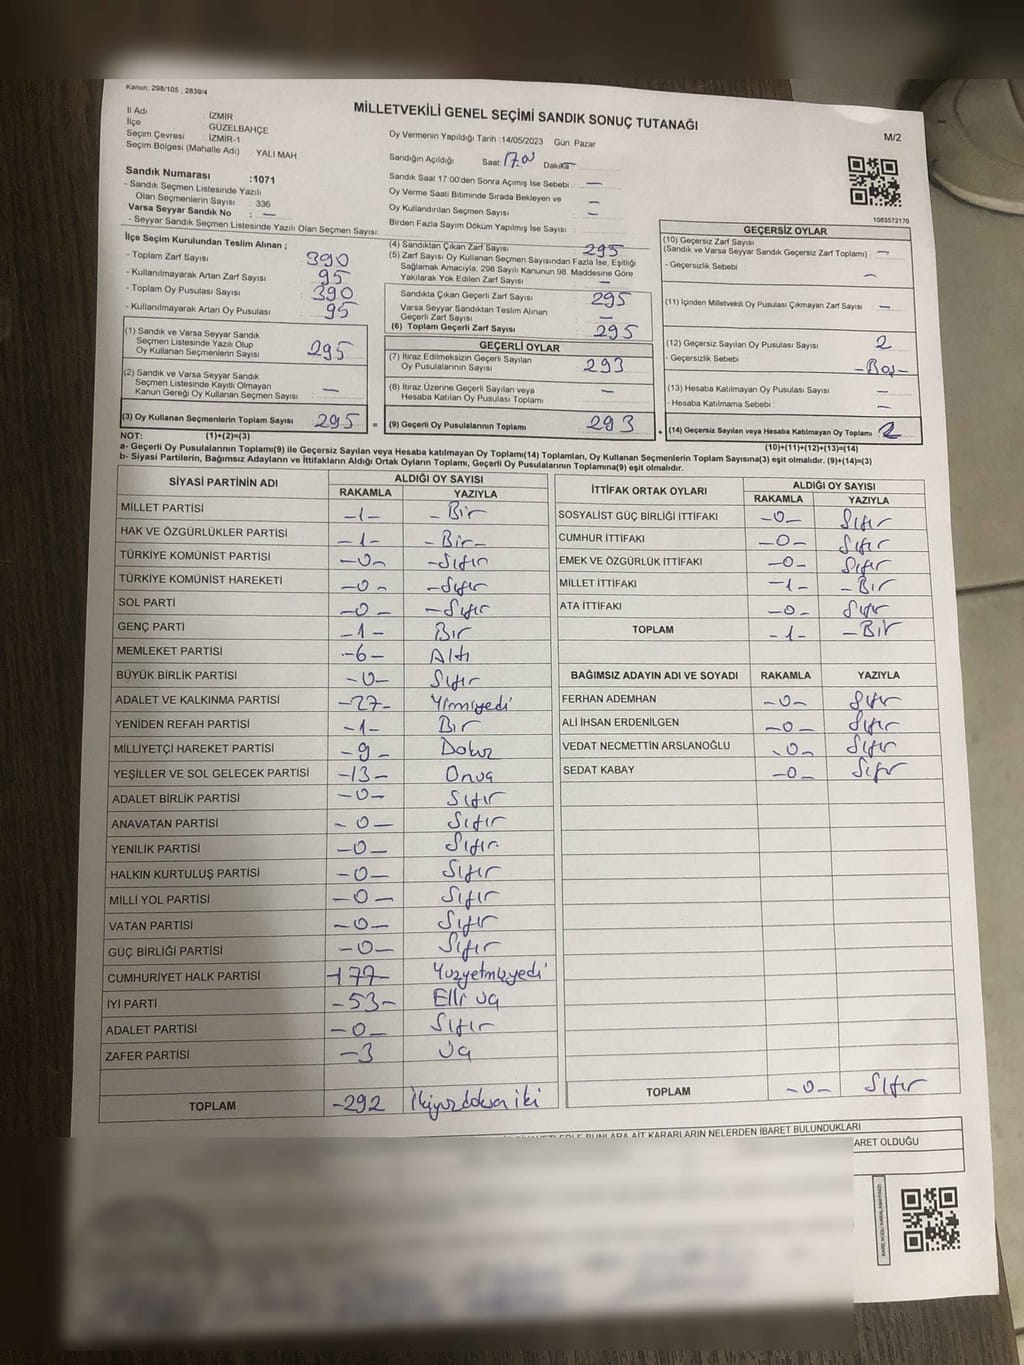 Kanun; 298/105 , 2839/4
MİLLETVEKİLİ GENEL SEÇİMİ SANDIK SONUÇ TUTANAĞI
M/2
İl Adı İZMİR
İlçe GÜZELBAHÇE
Seçim Çevresi İZMİR-1
Seçim Bölgesi (Mahalle Adı) YALI MAH
Oy Vermenin Yapıldığı Tarih :14/05/2023 Gün: Pazar
Sandığın Açıldığı Saat: 17.00 Dakika —
Sandık Numarası :1071
- Sandık Seçmen Listesinde Yazılı
Olan Seçmenlerin Sayısı : 336
Varsa Seyyar Sandık No : —
- Seyyar Sandık Seçmen Listesinde Yazılı Olan Seçmen Sayısı:
Sandık Saat 17:00'den Sonra Açımış İse Sebebi : —
Oy Verme Saati Bitiminde Sırada Bekleyen ve
Oy Kullandırılan Seçmen Sayısı —
Birden Fazla Sayım Döküm Yapılmış İse Sayısı :
1083572170
İlçe Seçim Kurulundan Teslim Alınan ;
- Toplam Zarf Sayısı 390
- Kullanılmayarak Artan Zarf Sayısı 95
- Toplam Oy Pusulası Sayısı 390
- Kullanılmayarak Artan Oy Pusulası 95
(1) Sandık ve Varsa Seyyar Sandık
Seçmen Listesinde Yazılı Olup
Oy Kullanan Seçmenlerin Sayısı 295
(2) Sandık ve Varsa Seyyar Sandık
Seçmen Listesinde Kayıtlı Olmayan
Kanun Gereği Oy Kullanan Seçmen Sayısı —
(3) Oy Kullanan Seçmenlerin Toplam Sayısı 295 =
(4) Sandıktan Çıkan Zarf Sayısı 295
(5) Zarf Sayısı Oy Kullanan Seçmen Sayısından Fazla İse, Eşitliği
Sağlamak Amacıyla, 298 Sayılı Kanunun 98. Maddesine Göre
Yakılarak Yok Edilen Zarf Sayısı —
Sandıkta Çıkan Geçerli Zarf Sayısı 295
Varsa Seyyar Sandıktan Teslim Alınan
Geçerli Zarf Sayısı —
(6) Toplam Geçerli Zarf Sayısı 295
GEÇERLİ OYLAR
(7) İtiraz Edilmeksizin Geçerli Sayılan
Oy Pusulalarının Sayısı 293
(8) İtiraz Üzerine Geçerli Sayılan veya
Hesaba Katılan Oy Pusulası Toplamı —
(9) Geçerli Oy Pusulalarının Toplamı 293 +
GEÇERSİZ OYLAR
(10) Geçersiz Zarf Sayısı
(Sandık ve Varsa Seyyar Sandık Geçersiz Zarf Toplamı) —
- Geçersizlik Sebebi —
(11) İçinden Milletvekili Oy Pusulası Çıkmayan Zarf Sayısı —
(12) Geçersiz Sayılan Oy Pusulası Sayısı 2
- Geçersizlik Sebebi -Boş-
(13) Hesaba Katılmayan Oy Pusulası Sayısı —
- Hesaba Katılmama Sebebi : —
(14) Geçersiz Sayılan veya Hesaba Katılmayan Oy Toplamı 2
NOT: (1)+(2)=(3) (10)+(11)+(12)+(13)=(14)
a- Geçerli Oy Pusulalarının Toplamı(9) ile Geçersiz Sayılan veya Hesaba katılmayan Oy Toplamı(14) Toplamları, Oy Kullanan Seçmenlerin Toplam Sayısına(3) eşit olmalıdır. (9)+(14)=(3)
b- Siyasi Partilerin, Bağımsız Adayların ve İttifakların Aldığı Ortak Oyların Toplamı, Geçerli Oy Pusulalarının Toplamına(9) eşit olmalıdır.
SİYASİ PARTİNİN ADI ALDIĞI OY SAYISI
RAKAMLA YAZIYLA
MİLLET PARTİSİ -1- - Bir
HAK VE ÖZGÜRLÜKLER PARTİSİ -1- - Bir-
TÜRKİYE KOMÜNİST PARTİSİ -0- -Sıfır
TÜRKİYE KOMÜNİST HAREKETİ -0- -Sıfır
SOL PARTİ -0- -Sıfır
GENÇ PARTİ -1- Bir
MEMLEKET PARTİSİ -6- Altı
BÜYÜK BİRLİK PARTİSİ -0- Sıfır
ADALET VE KALKINMA PARTİSİ -27- Yirmiyedi
YENİDEN REFAH PARTİSİ -1- Bir
MİLLİYETÇİ HAREKET PARTİSİ -9- Dokuz
YEŞİLLER VE SOL GELECEK PARTİSİ -13- Onüç
ADALET BİRLİK PARTİSİ -0- Sıfır
ANAVATAN PARTİSİ -0- Sıfır
YENİLİK PARTİSİ -0- Sıfır
HALKIN KURTULUŞ PARTİSİ -0- Sıfır
MİLLİ YOL PARTİSİ -0- Sıfır
VATAN PARTİSİ -0- Sıfır
GÜÇ BİRLİĞİ PARTİSİ -0- Sıfır
CUMHURİYET HALK PARTİSİ -177- Yüzyetmişyedi
İYİ PARTİ -53- Elli üç
ADALET PARTİSİ -0- Sıfır
ZAFER PARTİSİ -3 Üç
TOPLAM -292 İkiyüzdoksan iki
İTTİFAK ORTAK OYLARI ALDIĞI OY SAYISI
RAKAMLA YAZIYLA
SOSYALİST GÜÇ BİRLİĞİ İTTİFAKI -0- Sıfır
CUMHUR İTTİFAKI -0- Sıfır
EMEK VE ÖZGÜRLÜK İTTİFAKI -0- Sıfır
MİLLET İTTİFAKI -1- - Bir
ATA İTTİFAKI -0- Sıfır
TOPLAM -1- - Bir
BAĞIMSIZ ADAYIN ADI VE SOYADI RAKAMLA YAZIYLA
FERHAN ADEMHAN -0- Sıfır
ALİ İHSAN ERDENİLGEN -0- Sıfır
VEDAT NECMETTİN ARSLANOĞLU -0- Sıfır
SEDAT KABAY -0- Sıfır
TOPLAM -0- Sıfır
BUNLARA AİT KARARLARIN NELERDEN İBARET BULUNDUKLARI
ARET OLDUĞU